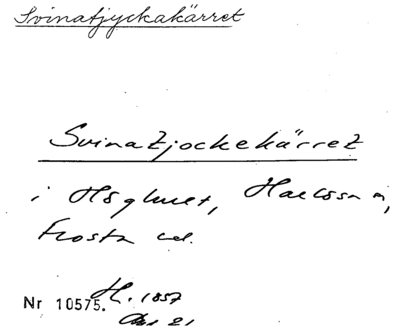 Svinatjyckakärret
Svinatjockekärret
i Höghult, Harlösa sn,
Frosta hd.
H. 1857
Nr 10575.
Akt 21